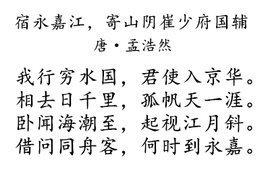 宿永嘉江，寄山阴崔少府国辅
唐·孟浩然
我行穷水国，君使入京华。
相去日千里，孤帆天一涯。
卧闻海潮至，起视江月斜。
借问同舟客，何时到永嘉。